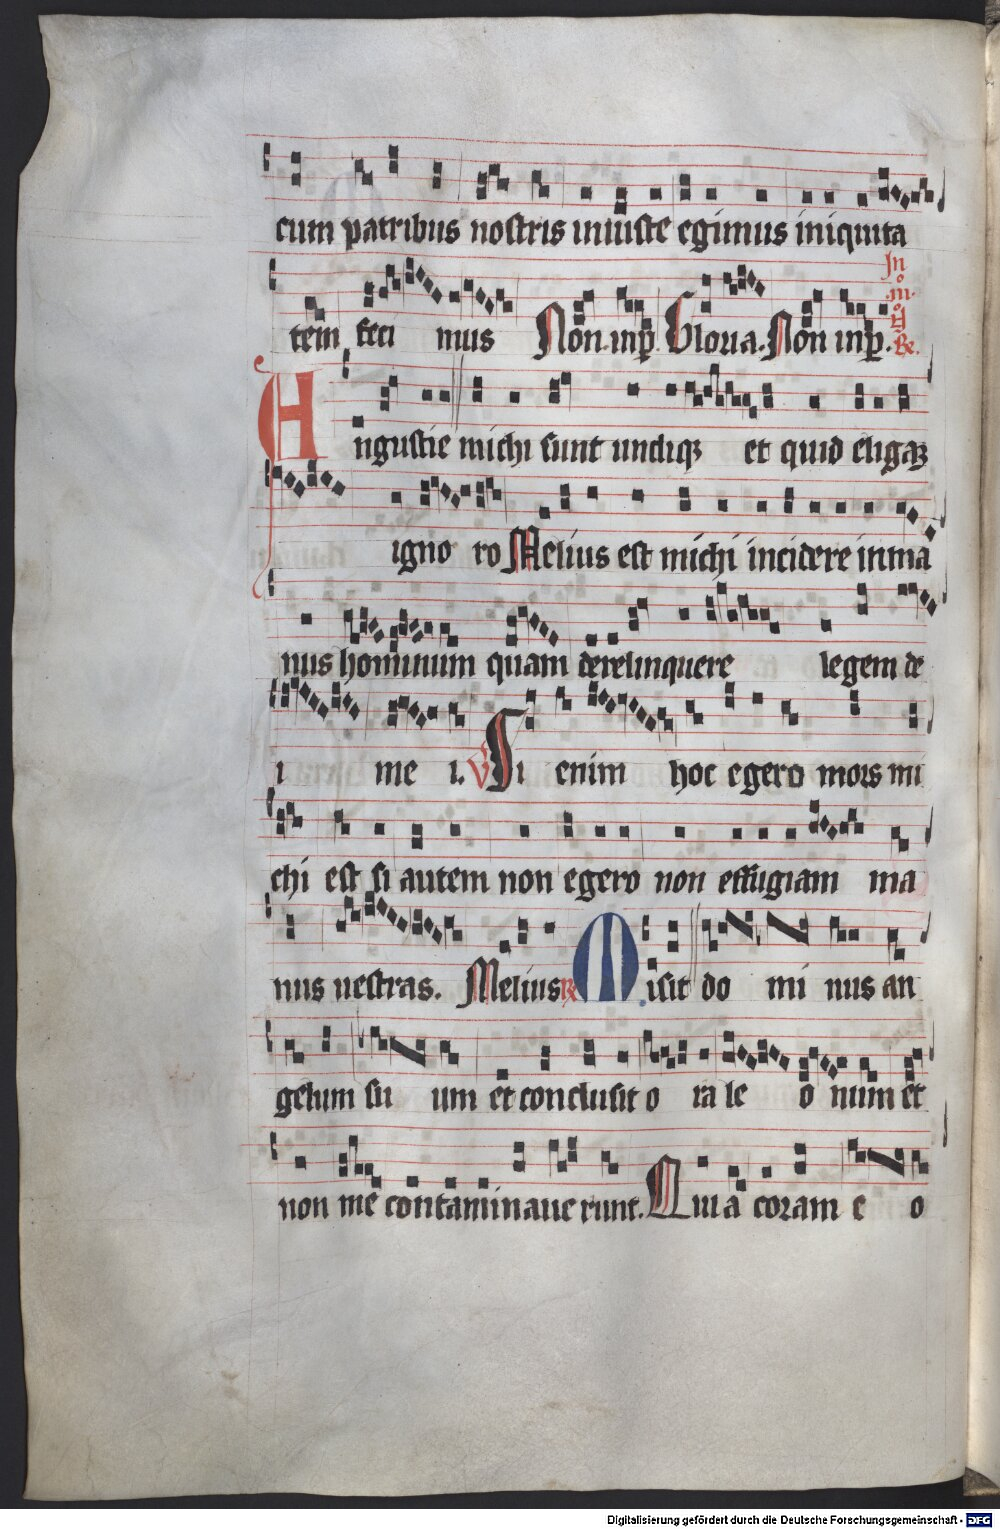 cum patribus nostris iniuste egimus iniquita
tem feci mus Non inp. Gloria. Non inp.
In
o
.m.
Re.
Angustie michi sunt undiqꝫ et quid eligaꝫ
igno ro Melius est michi incidere in ma
nus hominum quam derelinquere legem de
i me i. V Si enim hoc egero mors mi
chi est si autem non egero non effugiam ma
nus uestras. Melius ℞ Misit do mi nus an
gelum su um et conclusit o ra le o num et
non me contaminaue runt. Quia coram e o
Digitalisierung gefördert durch die Deutsche Forschungsgemeinschaft - DFG